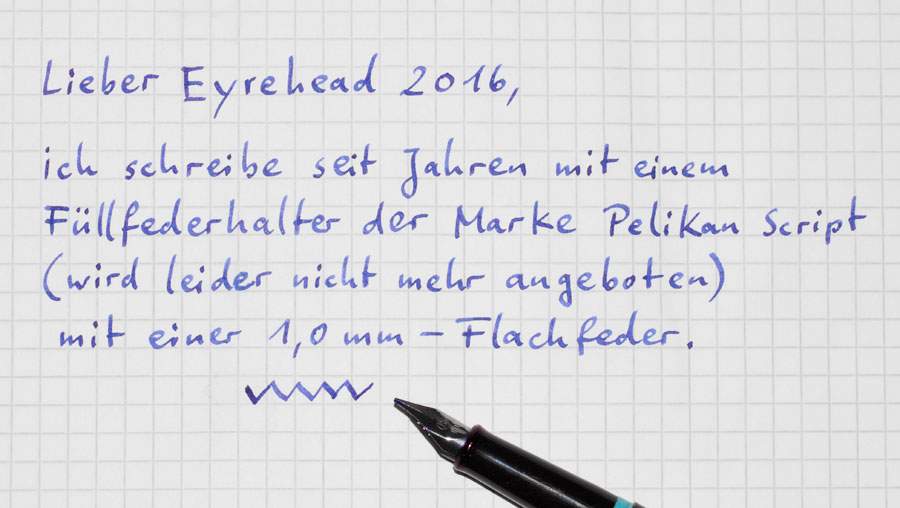 Lieber Eyrehead 2016,
ich schreibe seit Jahren mit einem
Füllfederhalter der Marke Pelikan Script
(wird leider nicht mehr angeboten)
mit einer 1,0 mm – Flachfeder.